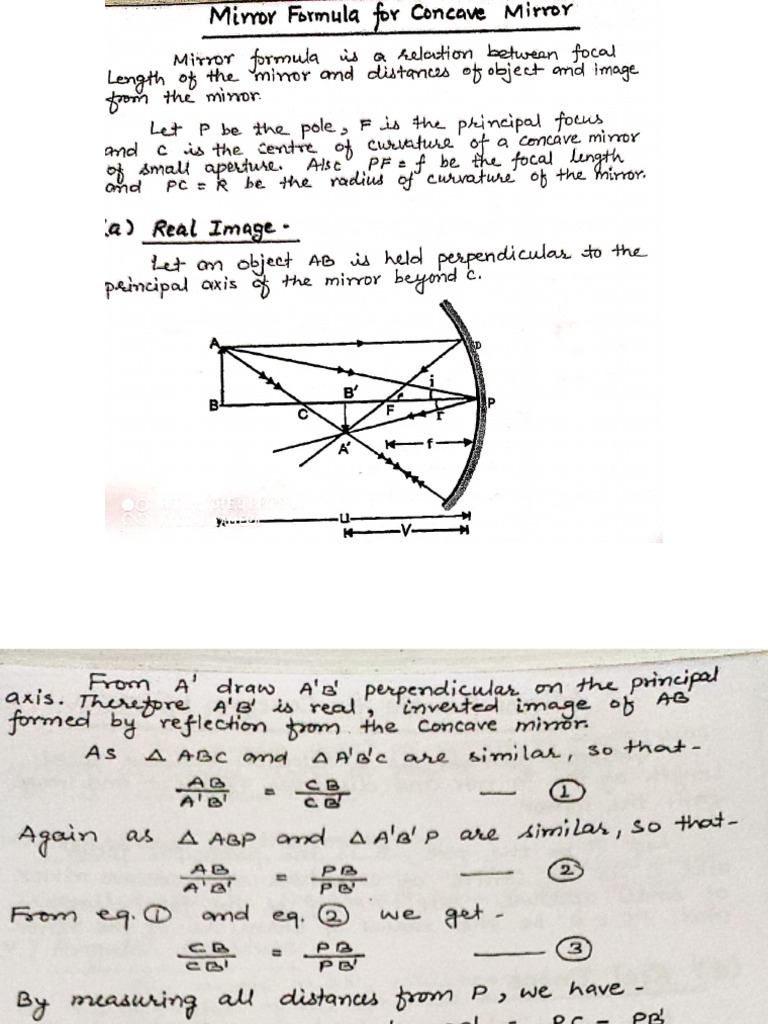 Mirror Formula for Concave Mirror
Mirror formula is a relation between focal
Length of the mirror and distances of object and image
from the mirror.
Let P be the pole, F is the principal focus
and C is the centre of curvature of a concave mirror
of small aperture. Also PF = f be the focal length
and PC = R be the radius of curvature of the mirror.
(a) Real Image -
Let an object AB is held perpendicular to the
principal axis of the mirror beyond C.
A
D
i
B'
B
C
F
r
P
A'
f
u
V
From A' draw A'B' perpendicular on the principal
axis. Therefore A'B' is real, inverted image of AB
formed by reflection from the concave mirror.
As Δ ABC and Δ A'B'C are similar, so that -
AB/A'B' = CB/CB' — ①
Again as Δ ABP and Δ A'B'P are similar, so that -
AB/A'B' = PB/PB' — ②
From eq. ① and eq. ② we get -
CB/CB' = PB/PB' — ③
By measuring all distances from P, we have -
PC - PB'